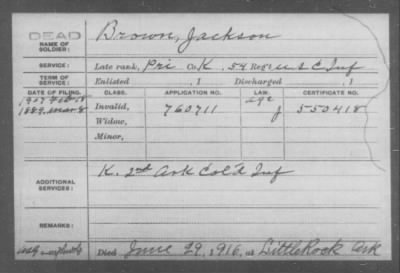 DEAD
NAME OF SOLDIER: Brown, Jackson
SERVICE: Late rank, Pri Co. K, 54 Reg't U S C Inf
TERM OF SERVICE: Enlisted , 1 Discharged , 1
DATE OF FILING. CLASS. APPLICATION NO. LAW. CERTIFICATE NO.
1907 Feb 18 Age
1889 Mar 8 Invalid, 760711 J 550418
Widow,
Minor,
ADDITIONAL SERVICES: K. 2nd Ark Col'd Inf
REMARKS:
Died June 29, 1916, at Little Rock Ark